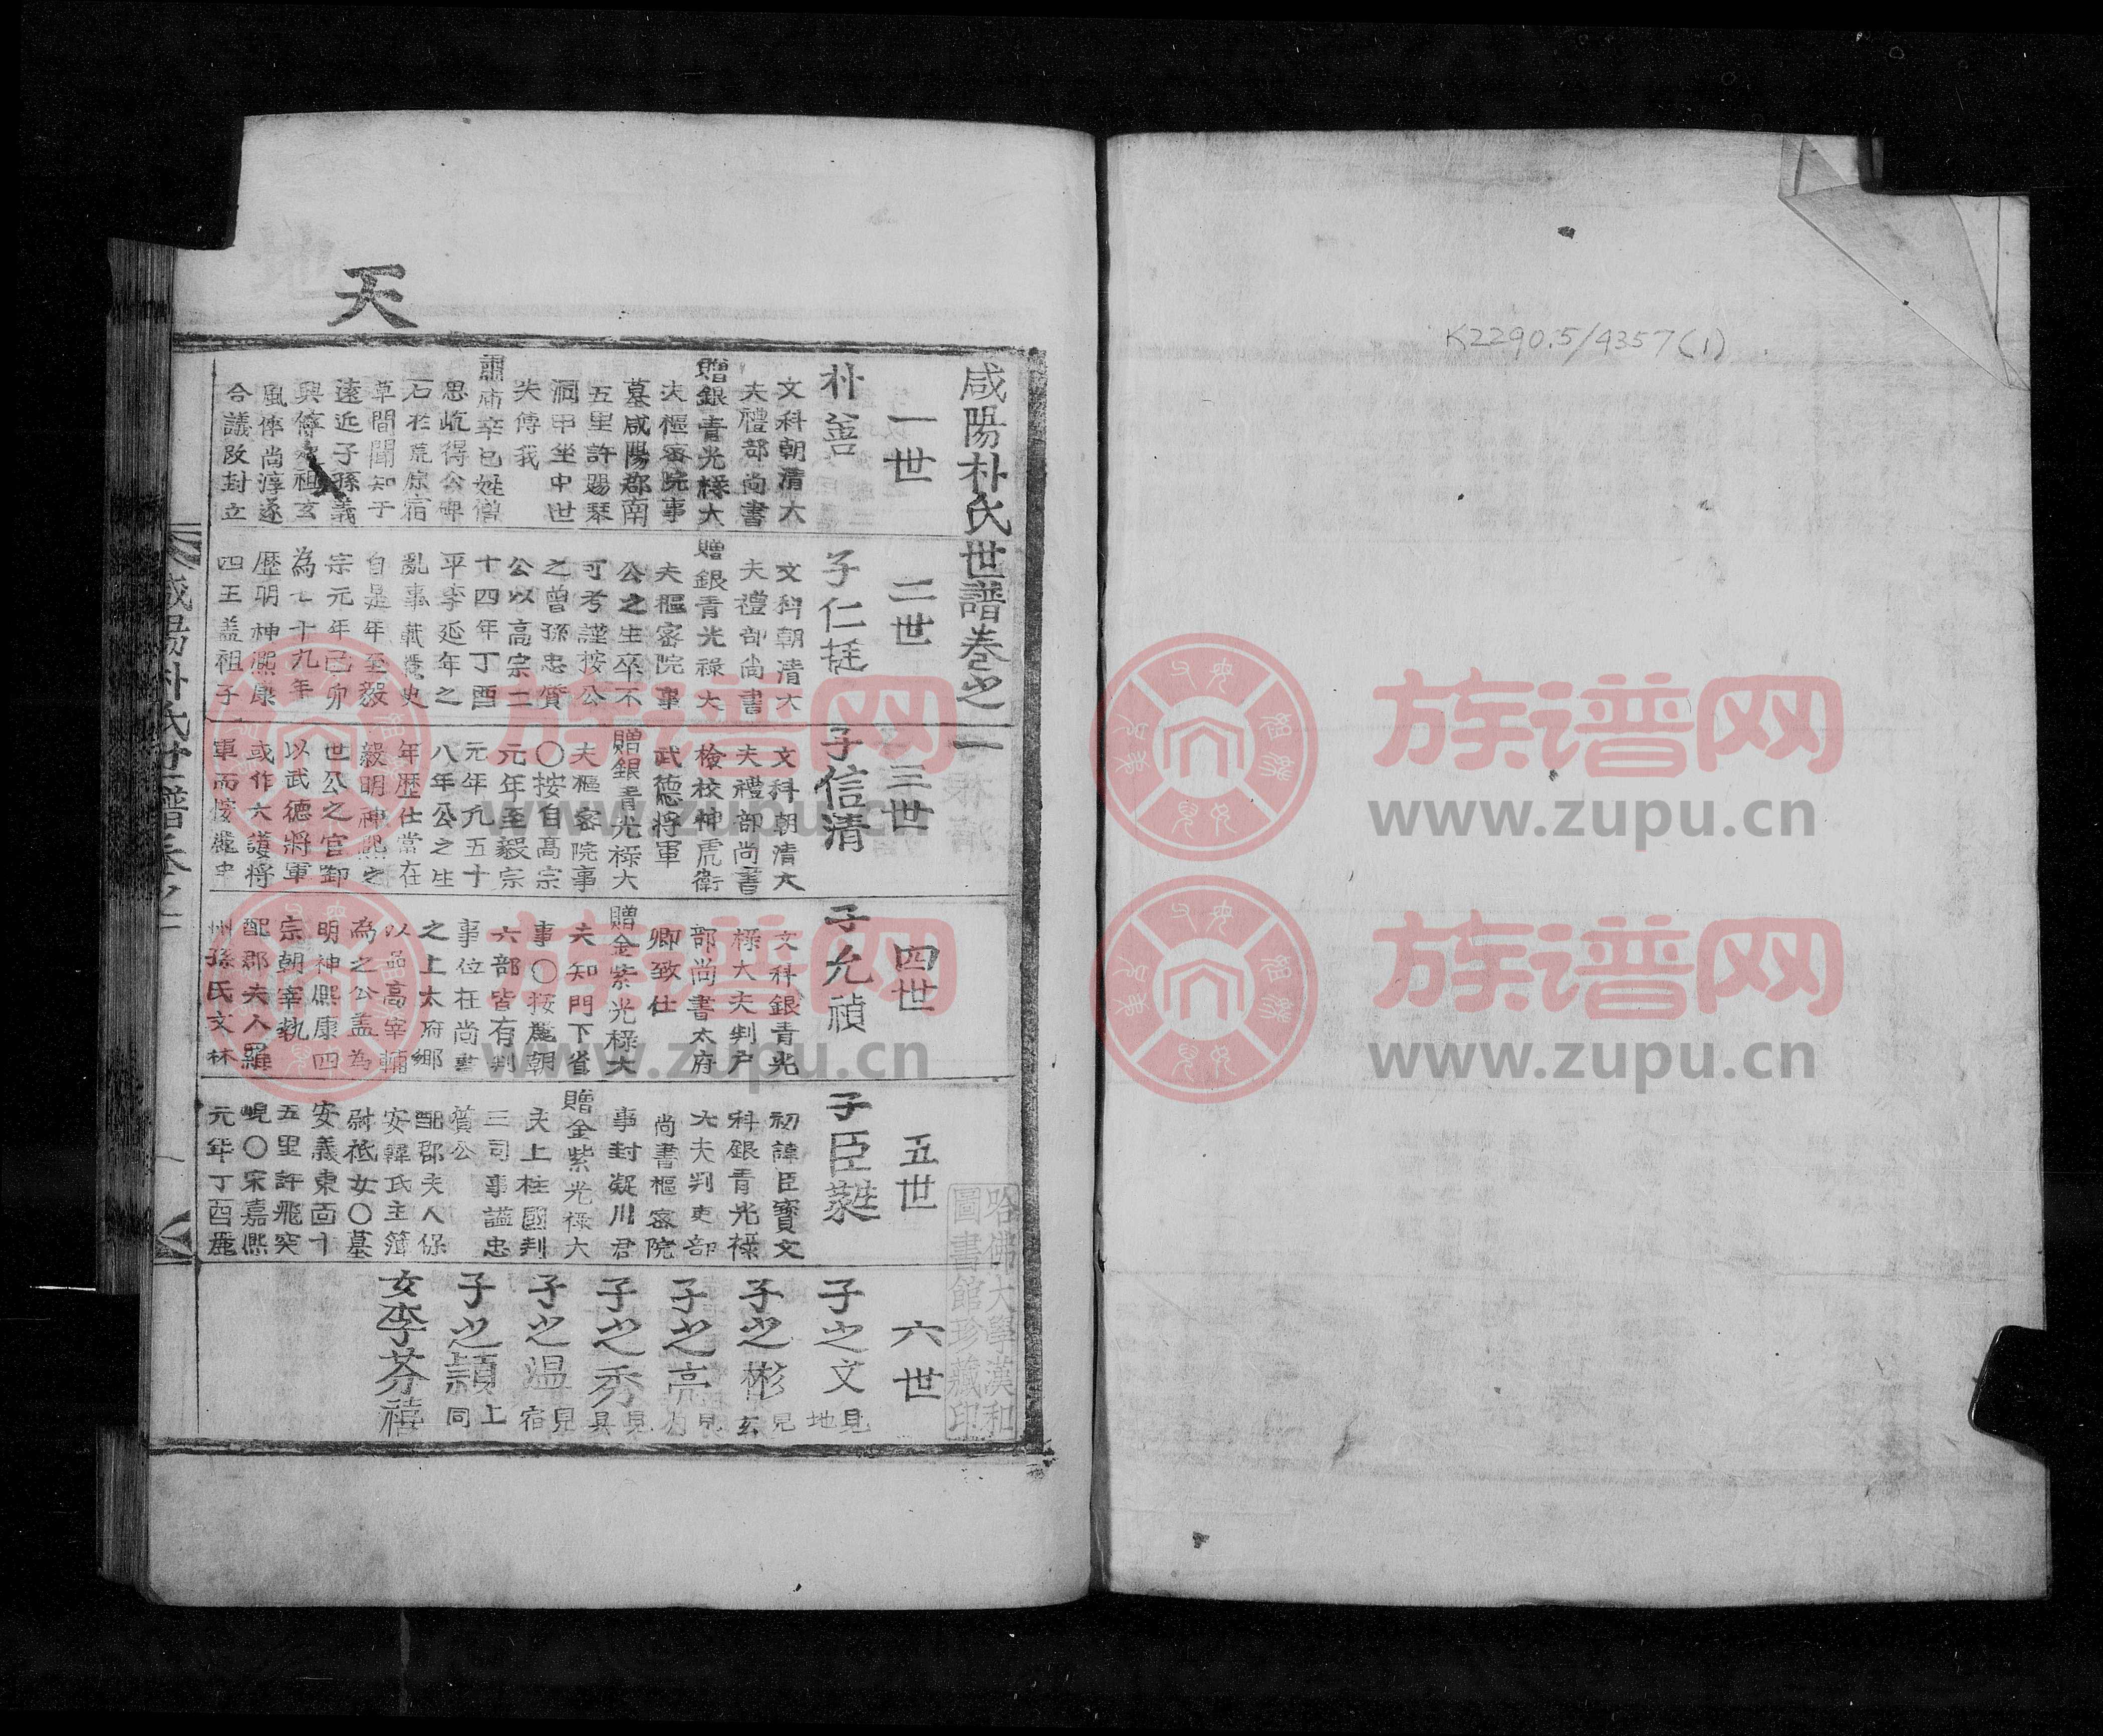 K2290.5/4357(1)
天
咸陽朴氏世譜卷之一
一世
朴善
文科朝清大
夫禮部尚書
贈銀青光祿大
夫樞密院事
墓咸陽郡南
五里許賜琴
洞甲坐中世
失傳我
肅廟辛巳姓僧
思屹得公碑
石於荒原宿
草間聞知于
遠近子孫義
興倅
祖玄
風倅尚淳遂
合議改封立
二世
子仁挺
文科朝清大
夫禮部尚書
贈銀青光祿大
夫樞密院事
公之生卒不
可考謹按公
之曾孫忠質
公以高宗二
十四年丁酉
平李延年之
亂事載麗史
自是年至毅
宗元年己卯
為七十九年
歷明神熙康
四王盖祖子
三世
子信清
文科朝清大
夫禮部尚書
檢校神虎衛
武德將軍
贈銀青光祿大
夫樞密院事
○按自高宗
元年至毅宗
元年凡五十
八年公之生
年歷仕當在
毅明神熙之
世公之官卸
以武德將軍
或作六護將
軍而按麗史
四世
子允禎
文科銀青光
祿大夫判户
部尚書太府
卿致仕
贈金紫光祿大
夫知門下省
事○按麗朝
六部皆有判
事位在尚書
之上太府鄉
以品高宰輔
為之公盖為
明神熙康四
宗朝宰執
配郡夫人羅
州孫氏文林
五世
子臣蕤
初諱臣寶文
科銀青光祿
大夫判吏部
尚書樞密院
事封凝川君
贈金紫光祿大
夫上柱國判
三司事諡忠
質公
配郡夫人保
安韓氏主簿
尉祗女○墓
安義東面十
五里許飛突
峴○宋嘉熙
元年丁酉麗
六世
子之文 見地
子之彬 見玄
子之亮 見
子之秀 見
子之温 見宿
子之頴 同上
女李芬禧
咸陽朴氏世譜卷之一
哈佛大學漢和
圖書館珍藏印
族谱网
www.zupu.cn
族谱网
www.zupu.cn
族谱网
www.zupu.cn
族谱网
www.zupu.cn